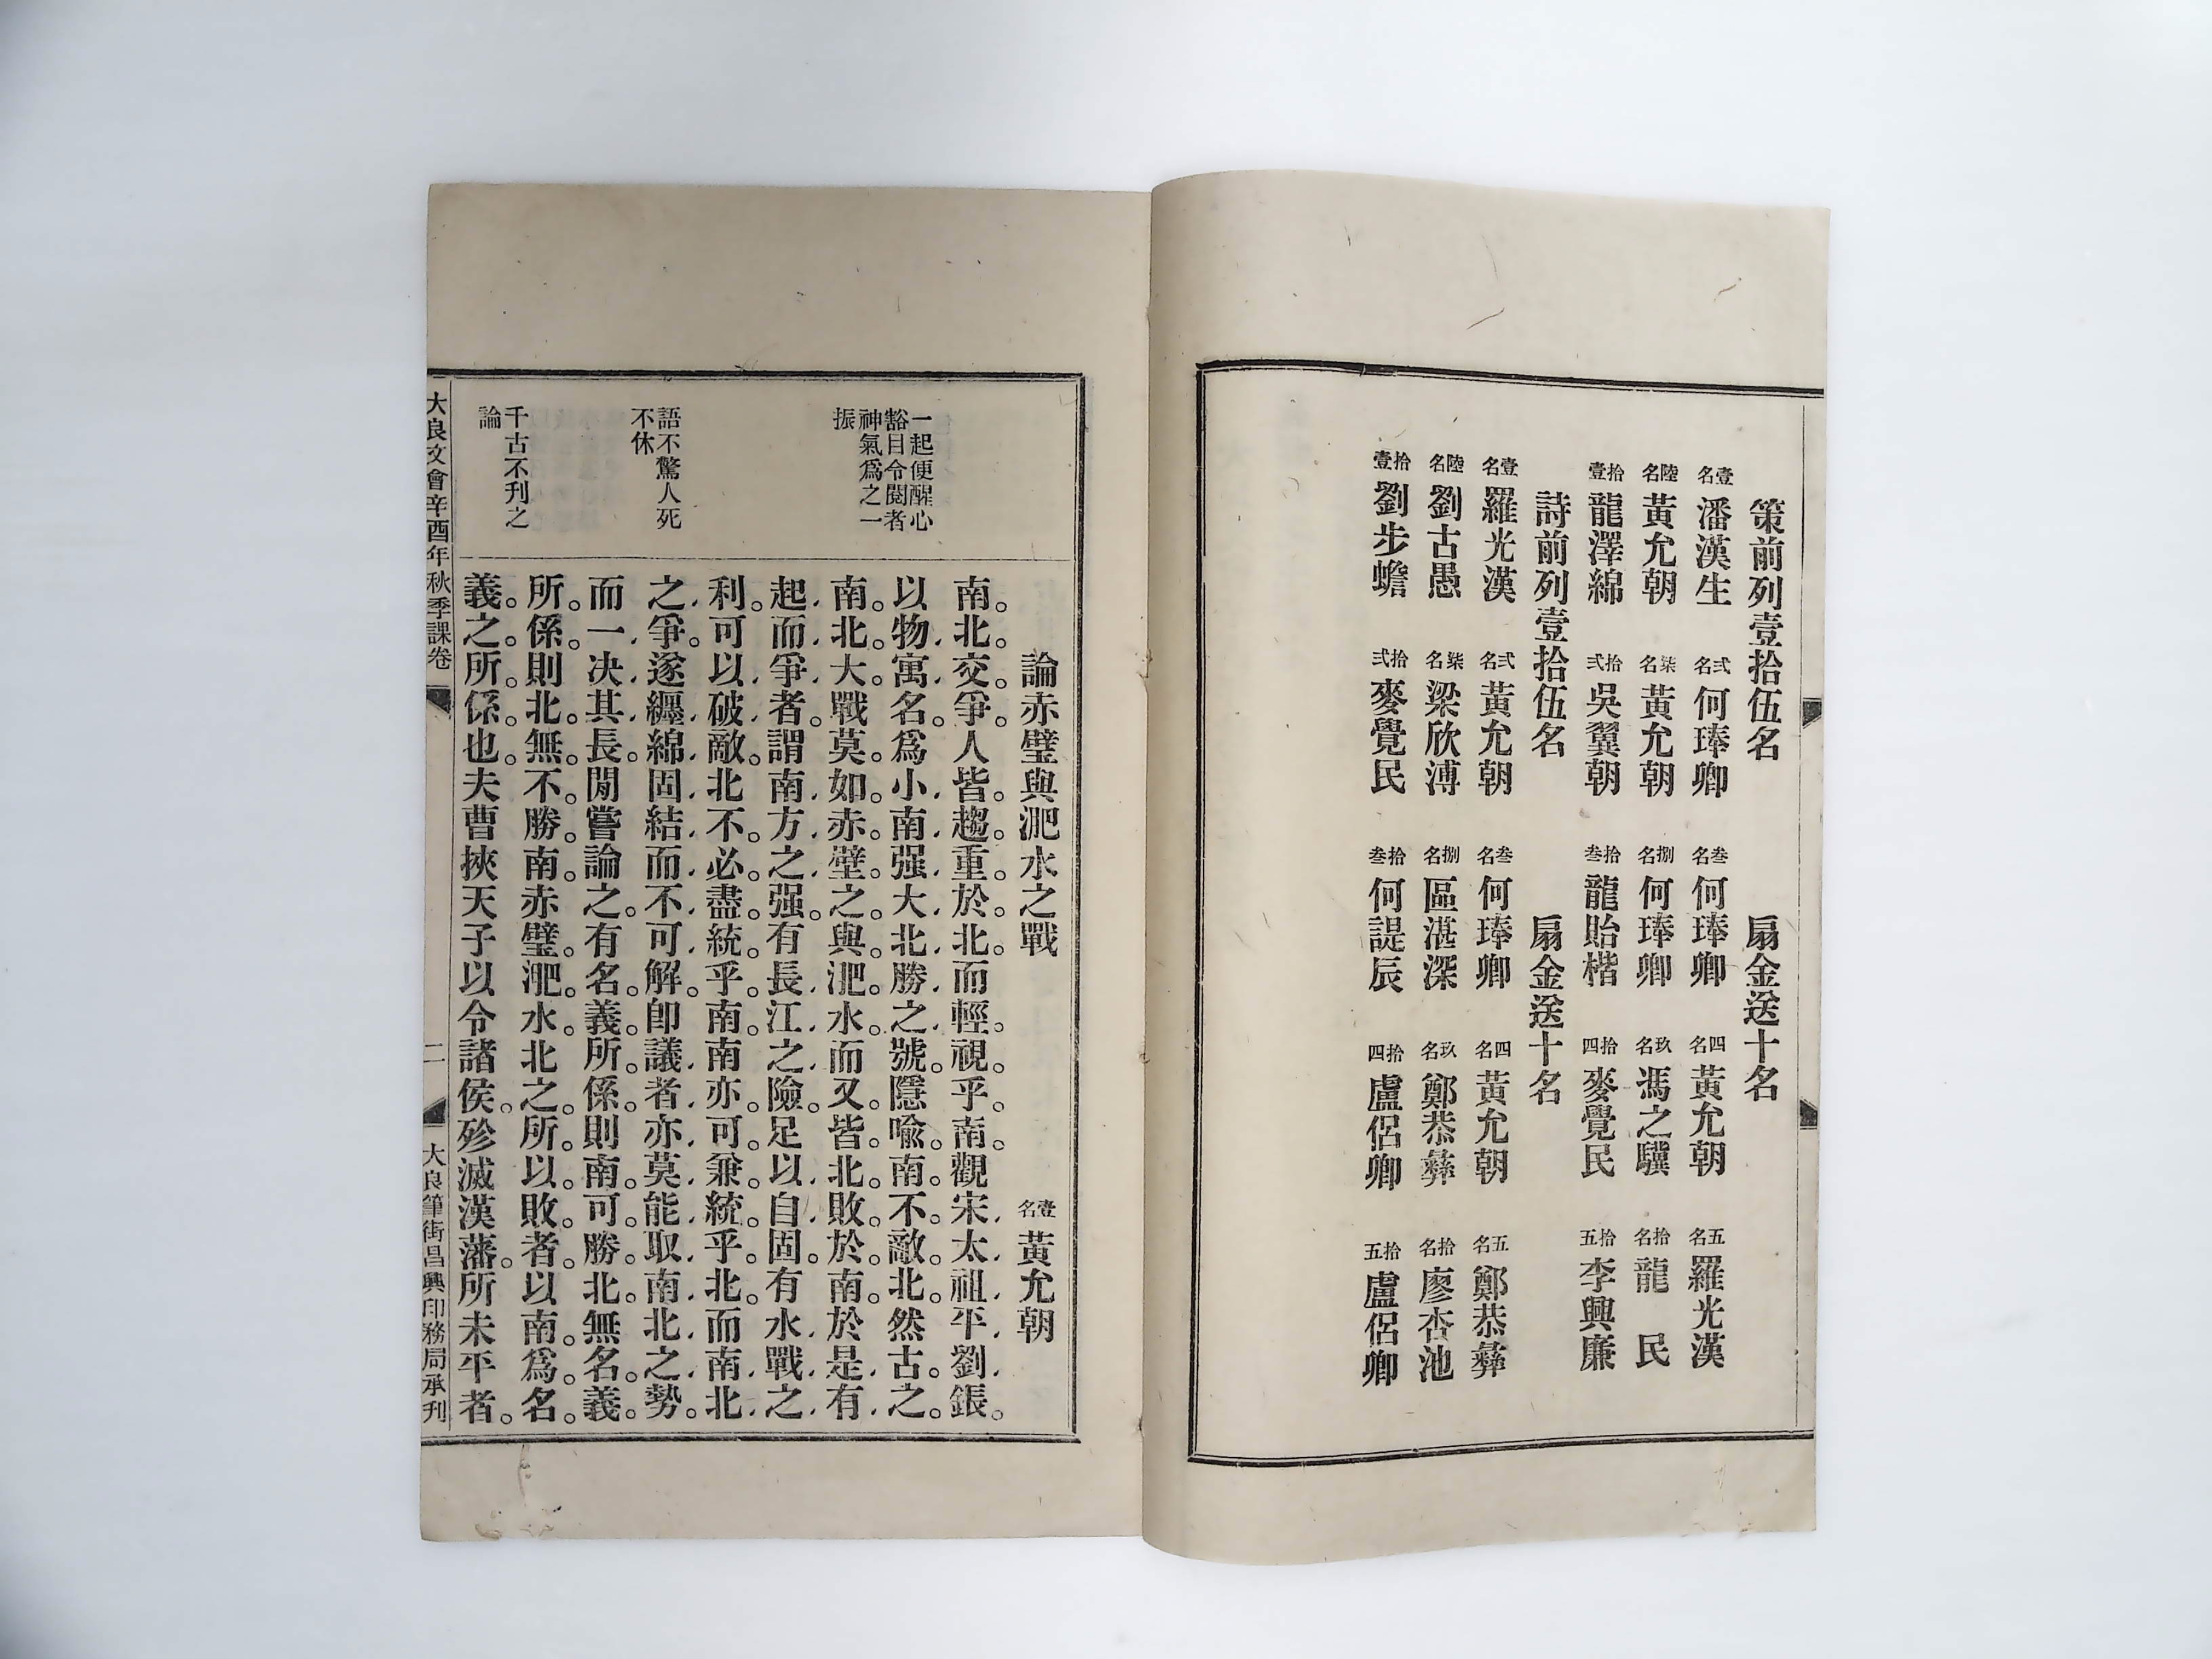 策前列壹拾伍名　扇金送十名
壹名 潘漢生　弍名 何琫卿　叁名 何琫卿　四名 黃允朝　五名 羅光漢
陸名 黃允朝　柒名 黃允朝　捌名 何琫卿　玖名 馮之驥　拾名 龍民
拾壹 龍澤綿　拾弍 吳翼朝　拾叁 龍貽楷　拾四 麥覺民　拾五 李興廉
詩前列壹拾伍名　扇金送十名
壹名 羅光漢　弍名 黃允朝　叁名 何琫卿　四名 黃允朝　五名 鄭恭彝
陸名 劉古愚　柒名 梁欣溥　捌名 區湛深　玖名 鄭恭彝　拾名 廖杏池
拾壹 劉步蟾　拾弍 麥覺民　拾叁 何諟辰　拾四 盧侶卿　拾五 盧侶卿
論赤壁與淝水之戰　壹名 黃允朝
一起便醒心
豁目令閱者
神氣爲之一
振
語不驚人死
不休
千古不刋之
論
南北交爭人皆趨重於北而輕視乎南觀宋太祖平劉鋹
以物寓名爲小南强大北勝之號隱喩南不敵北然古之
南北大戰莫如赤壁之與淝水而又皆北敗於南於是有
起而爭者謂南方之强有長江之險足以自固有水戰之
利可以破敵北不必盡統乎南南亦可兼統乎北而南北
之爭遂纒綿固結而不可解卽議者亦莫能取南北之勢
而一决其長閒嘗論之有名義所係則南可勝北無名義
所係則北無不勝南赤壁淝水北之所以敗者以南爲名
義之所係也夫曹挾天子以令諸侯殄滅漢藩所未平者
大良文會辛酉年秋季課卷　二　大良筆街昌興印務局承刋